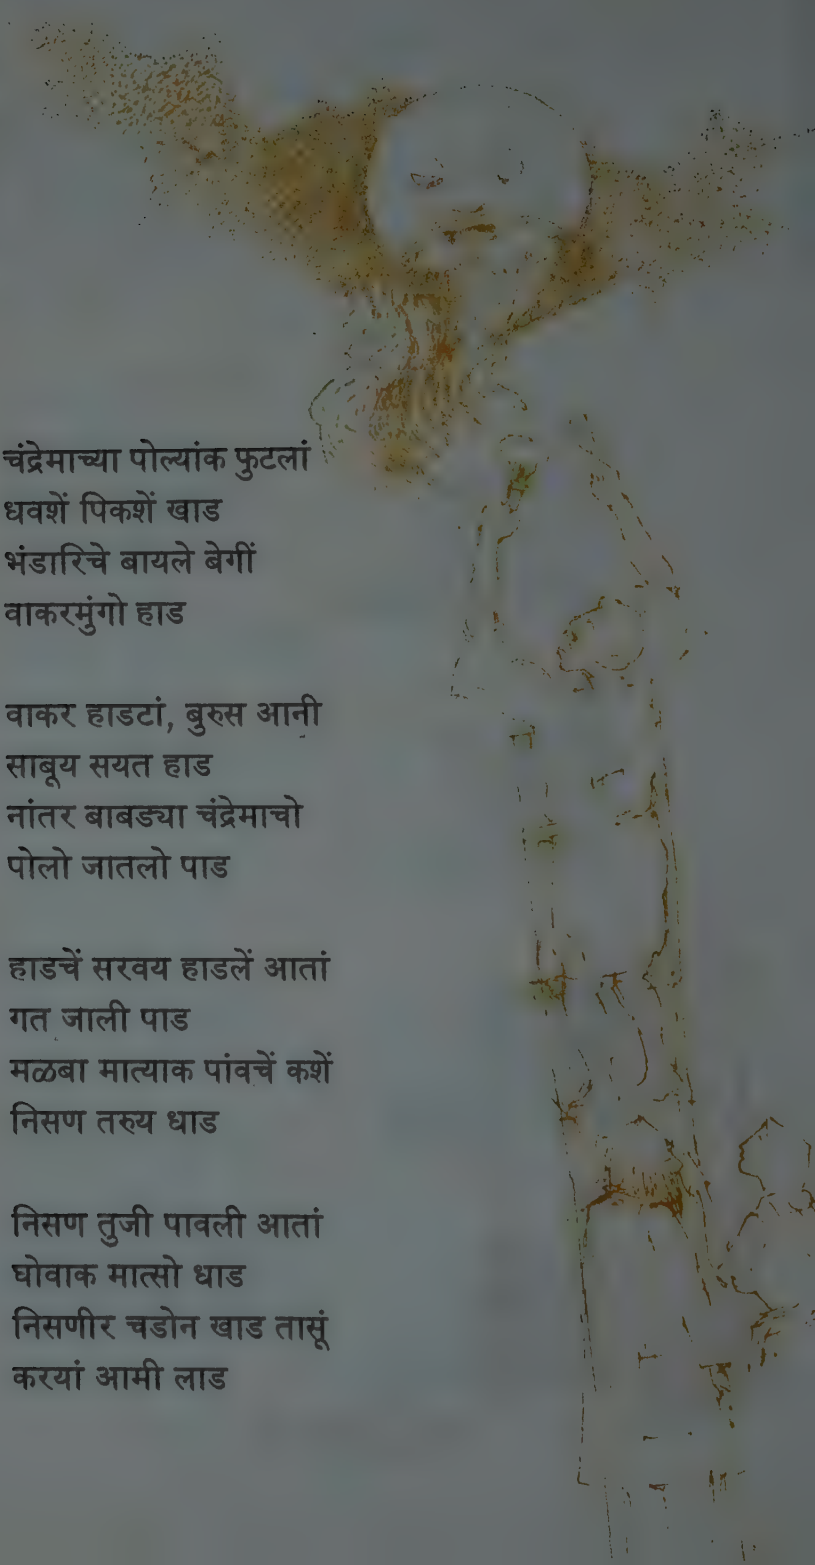 चंद्रेमाच्या पोल्यांक फुटलां
धवशें पिकशें खाड
भंडारिचे बायले बेगीं
वाकरमुंगो हाड

वाकर हाडटां, बुरुस आनी
साबूय सयत हाड
नांतर बाबड्या चंद्रेमाचो
पोलो जातलो पाड

हाडचें सरवय हाडलें आतां
गत जाली पाड
मळबा मात्याक पांवचें कशें
निसण तरुय धाड

निसण तुजी पावली आतां
घोवाक मात्सो धाड
निसणीर चडोन खाड तासूं
करयां आमी लाड